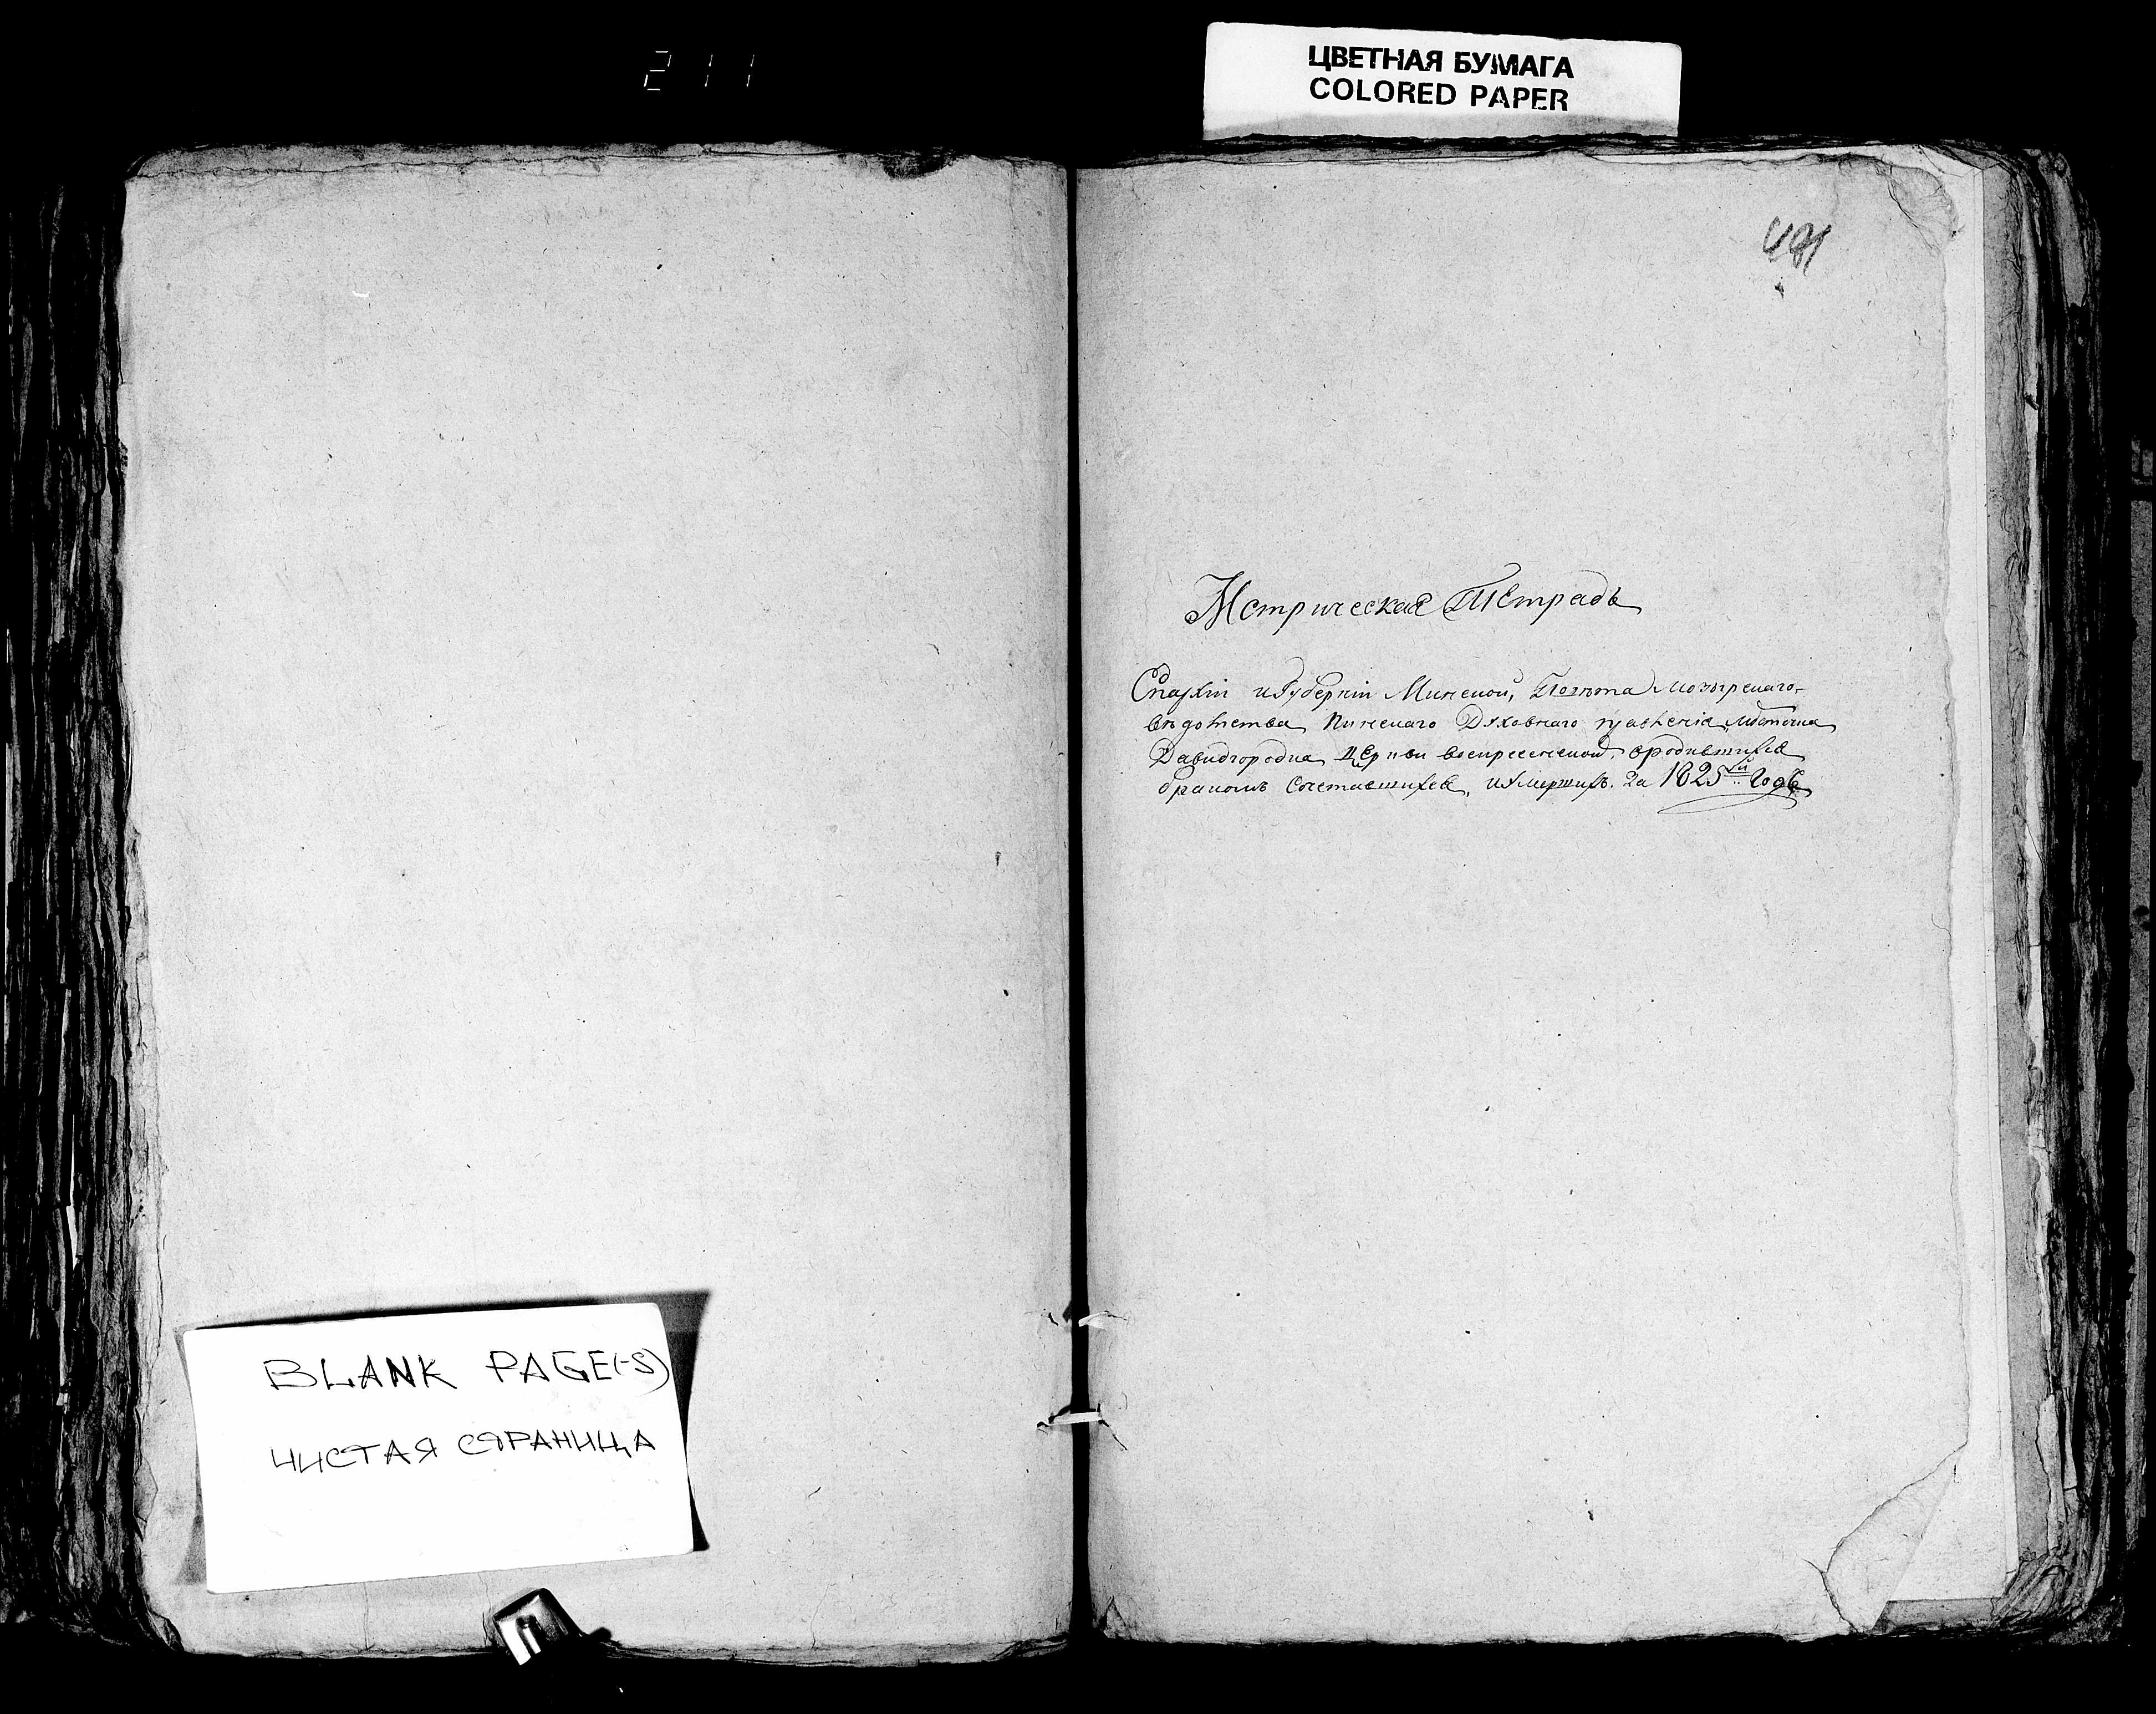 211
ЦВЕТНАЯ БУМАГА
COLORED PAPER
481
Метрическая Тетрадь
Епархіи и Губерніи Минской, Повѣта Мозырскаго
вѣдомства Пинскаго Духовнаго правленія, мѣстечка
Давидгородка Церкви воскресенской, ородившихся
бракомъ Сочетавшихся, и Умерших. За 1825 Годъ
BLANK PAGE(-S)
ЧИСТАЯ СТРАНИЦА